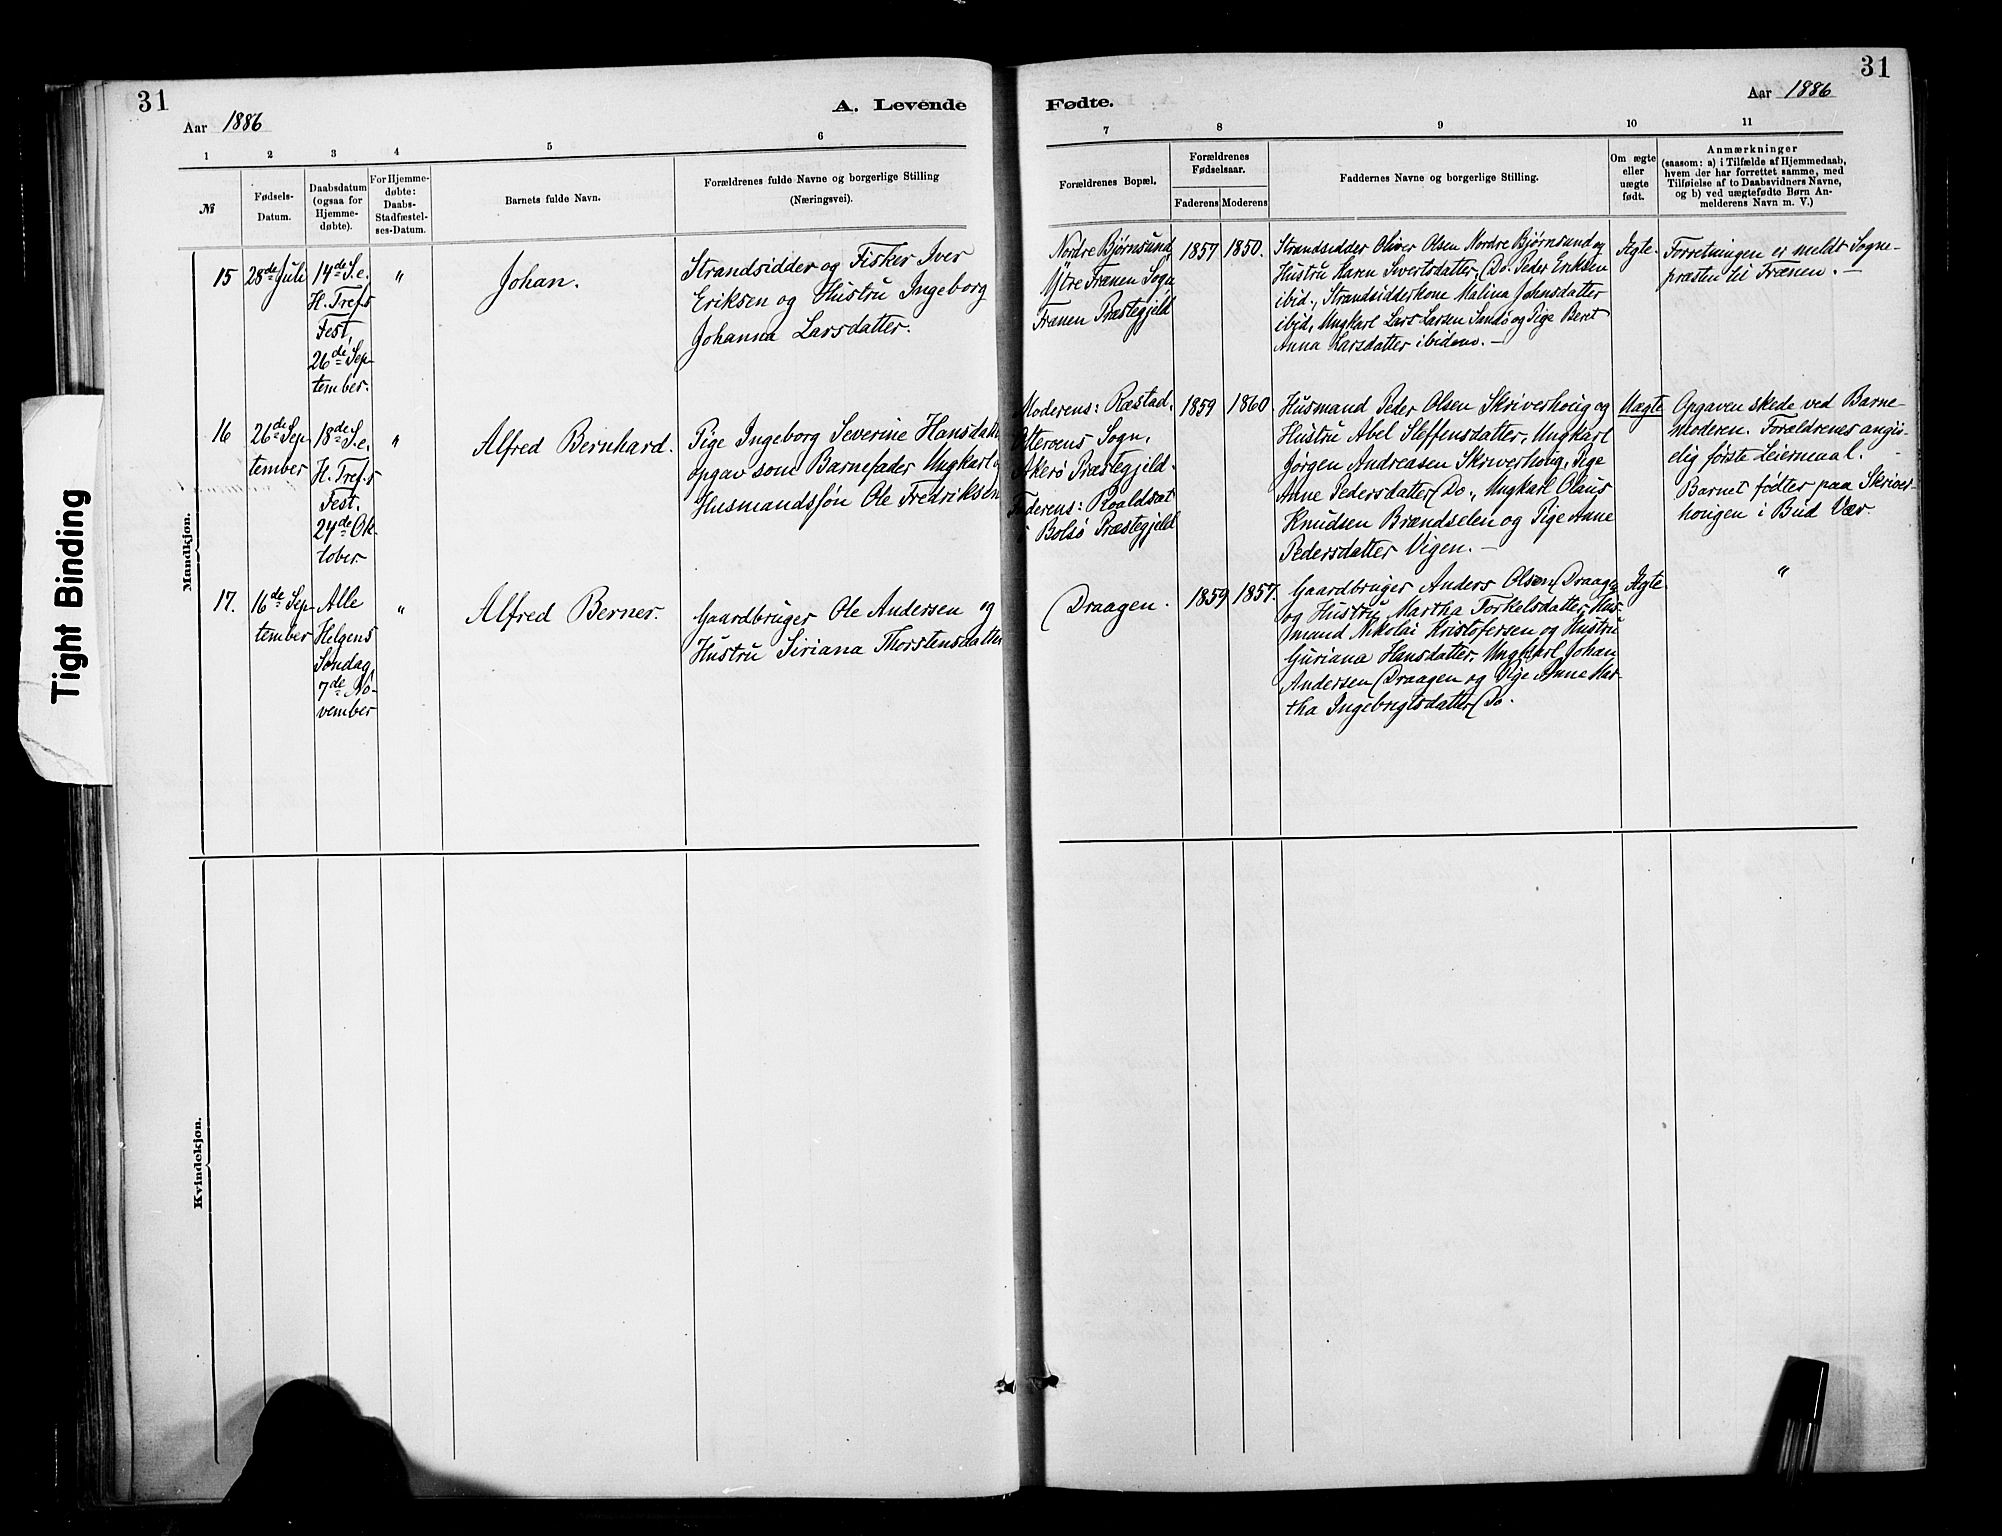 31
Aar 1886
A. Levende
Fødte.
Aar 1886
31
Tight Binding
1
2
3
4
5
6
7
8
9
10
11
№
Fødsels-
Datum.
Daabsdatum
(ogsaa for
Hjemme-
døbte).
For Hjemme-
døbte:
Daabs-
Stadfæstel-
ses-Datum.
Barnets fulde Navn.
Forældrenes fulde Navne og borgerlige Stilling
(Næringsvei).
Forældrenes Bopæl.
Forældrenes
Fødselsaar.
Faderens
Moderens
Faddernes Navne og borgerlige Stilling.
Om ægte
eller
uægte
født.
Anmærkninger
(saasom: a) i Tilfælde af Hjemmedaab,
hvem der har forrettet samme, med
Tilføielse af to Daabsvidners Navne,
og b) ved uægtefødte Børn An-
melderens Navn m. V.)
Mandkjøn.
15
28de Juli
14de S. e.
H. Tref.s
Fest,
26de Sep-
tember.
"
Johan.
Strandsidder og Fisker Iver
Eriksen og Hustru Ingeborg
Johanna Larsdatter.
Nordre Bjørnsund
Ytre Frænen Sogn
Frænen Præstegjeld
1857
1850.
Strandsidder Oliver Olsen Nordre Bjørnsund og
Hustru Karen Sivertsdatter, Do. Peder Eriksen
ibid., Strandsidderkone Malina Johnsdatter
ibid, Ungkarl Lars Larsen Sandø og Pige Beret
Anna Larsdatter ibidem. —
Ægte.
Forretningen er meldt Sogne-
præsten til Frænen. —
16
26de Sep-
tember
18de S. e.
H. Tref.s
Fest.
24de Ok-
tober.
"
Alfred Bernhard.
Pige Ingeborg Severine Hansdatter
opgav som Barnefader Ungkarl og
Husmandssøn Ole Fredriksen
Moderens: Ræstad,
Otterøens Sogn,
Akerø Præstegjeld.
Faderens: Roaldsæt
i Bolsø Præstegjeld
1859
1860
Husmand Peder Olsen Skriverhoug og
Hustru Abel Steffensdatter, Ungkarl
Jørgen Andreasen Skriverhoug, Pige
Anne Pedersdatter Do., Ungkarl Olaus
Knudsen Brændselen og Pige Anne
Pedersdatter Vigen. —
Uægte
Opgaven skede ved Barne-
moderen. Forældrenes angiv-
elig første Leiermaal. —
Barnet fødtes paa Skriver-
hougen i Bud Vær.
17.
16de Sep-
tember
Alle
Helgens
Søndag,
7de No-
vember
"
Alfred Berner.
Gaardbruger Ole Andersen og
Hustru Siriana Thorstensdatter
Draagen.
1859
1857.
Gaardbruger Anders Olsen Draagen
og Hustru Martha Torkelsdatter, Hus-
mand Nikolai Kristofersen og Hustru
Guriana Hansdatter, Ungkarl Johan
Andersen Draagen og Pige Anne Mar-
tha Ingebrigtsdatter Do.
Ægte
"
Kvindekjøn.